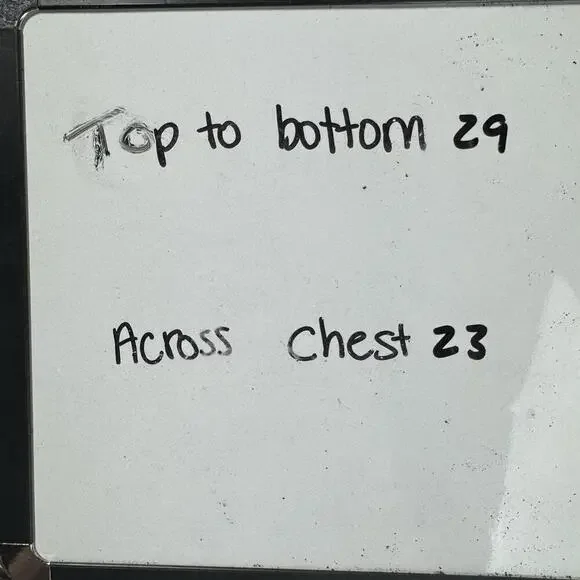 Top to bottom 29
Across Chest 23